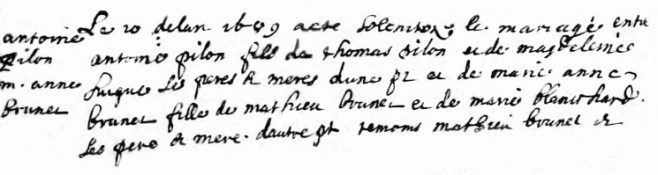 antoine
pilon
m. anne
brunet
Le 20 de lan 1689 acte solemnise le mariage entre
antoine pilon fils de thomas pilon et de magdeleine
huque ses peres & meres dune pt et de marie anne
brunet fille de mathieu brunet et de marie blanchard
ses pere & mere dautre pt temoins mathieu brunet &